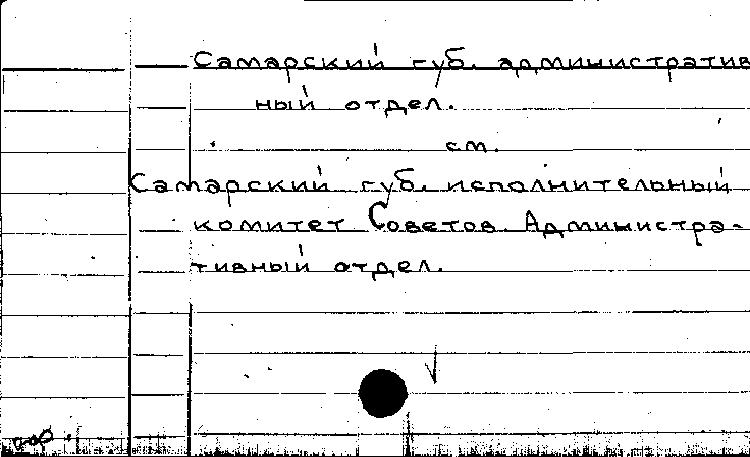 Самарский губ. административ
ный отдел.
см.
Самарский губ. исполнительный
комитет Советов. Администра-
тивный отдел.